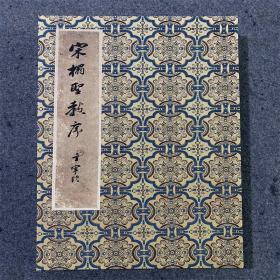 宋搨聖教序